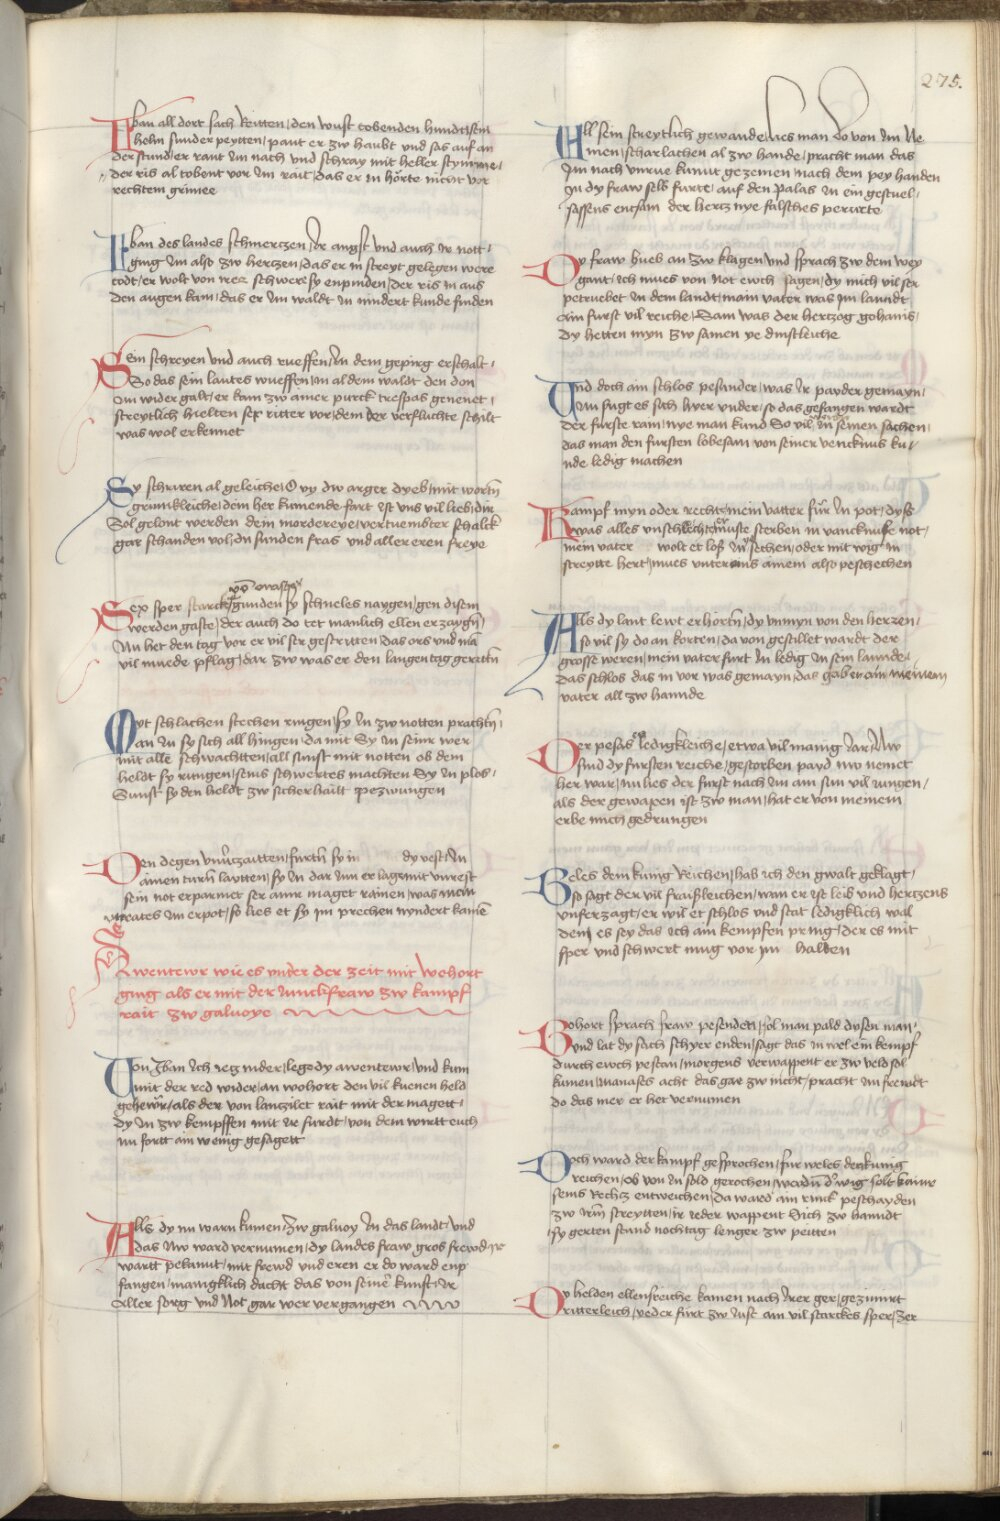 275.
Iban all dort sach Reitten / den wust tobenden hundtisem
helm sunder peytten / pant er zw haubt vnd sas auf an
der stund er rant im nach vnd schray mit heller stymme /
der ris al tobent vor im rait / das er in hörte nicht vor
rechtem grimee
Iban des landes schmertzen / Ir angst vnd auch ir nott /
ging im also zw hertzen / das er in streyt gelegen were
todt / er wolt von rew schwere sy enpinden / der ris in aus
den augen kam / das er im waldt in nindert kunde finden
Sein schreyen vnd auch rueffen / in dem gepirg erschalt /
So das sein lautes wueffen / in al dem waldt den don
im wider galt / er kam zw ainer purck trespas genenet /
streytlich hielten sex ritter vor / dem der verfluchte schilt
was wol erkennet
Sy schriren al geleiche / O vy dw arger dyeb / mit wortn
grimikleiche / dein her kumende fart ist vns vil lieb / dir
Sol gelont werden dein mordereye / vertuembter schalck
gar schanden vol / du sunden fras vnd aller eren freye
von orastegn
Sex sper starck gunden sy schneles naygen / gen disem
werden gaste / der auch do tet manlich ellen erzaygn /
Nu het den tag vor er vil ser gestritten / das ors vnd man
vil muede pflag / dar zw was er den langen tag geritn
Myt schlachen stechen ringen / sy in zw notten prachtn /
an in sy sich all hingen / da mit Sy in seinr wer
mit alle schwachtten / all sunst mit notten ob dem
heldt sy rungen / seins schwertes machten Sy in plos /
Sunst sy den heldt zw sicherhailt pezwungen
Den degen vnuerzaitten / furtn sy in dy vest / in
ainen turn laytten / sy in dar inn er lag mit vnrest
sein not erparmet ser ainr maget rainen / was mein
vreates im erpot / so lies et sy im prechen nyndert kaine
Awentewr wie es vnter der zeit mit wohort
ging als er mit der iunckfraw zw kampf
rait zw galuoye
Von Iban ich leg nider / leg dy awentewr / vnd kum
mit der red wider / an wohort den vil kuenen held
gehewr / als der von lanzilet rait mit der magett /
dy in zw kempffen mit ir furdt / von dem wirtt euch
nu fortt ain wenig gesagett
Alls dy nu warn kumen / zw galuoy in das landt / vnd
das Nw ward vernumen / dy landes fraw gros frewd ir
wartt pekannt / mit frewd vnd eren er do ward enp
fangen / manigklich dacht das von seiner kunst ir
Aller sorg vnd Not gar wer vergangen
All sein streytlich gewande / lies man do von im Ne
men / scharlachen al zw hande / pracht man das
Im nach vnrue kunur gezemen / nach dem pey handen
in dy fraw selb furte / auf den palas in ein gestuel /
sassens entsam der hertz nye falsches perurte
Dy fraw hueb an zw klagen / vnd sprach zw dem wey
gant / ich mues von not ewch sagen / dy mich vil ser
petruebet in dem landt / mein vater was im lanndt
Ain furst vil reiche / Sam was der hertzog gohanis /
dy hetten myn zw samen ye dinstleiche
Vnd doch ain schlos pesunder / was ir payder gemayn /
Nu fugt es sich hver vnder / so das gefangen wardt
der furste rain / nye man kund So vil in seinen sachen /
das man den fursten lobesam von seiner vencknus ku /
nde ledig machen
Kampf myn oder recht / mein vatter fur in pot / dyss
was alles vnschlecht / er muste sterben in vancknuss not /
mein vater wolt er loss in sechen / oder mit wig in
streytte hert / mues vnter uns ainem also peschechen
Als dy lant lewt erhortn / dy vnmyn von den herzen /
so vil sy do an korten / da von gestillet wardt der
grosse weren / mein vater furt in ledig in sein lannde /
das schlos das in vor was gemayn / das gab er ain meinem
vater all zw hannde
Der pesas er ledigkleiche / etwa vil manig Jar / Nw
sind dy fursten reiche / gestorben payd nw nemet
her war / nu lies der furst nach im ain sun vil iungen /
als der gewapen ist zw man / hat er von meinem
erbe mich gedrungen
Beles dem kung Reichen / hab ich den gwalt geklagt /
so sagt der vil fraissleichen / wan er ist leib vnd hertzens
vnferzagt / er wil et schlos vnd stat ledigklich wal
dem es sey das ich ain kempfen pring / der es mit
sper vnd schwert mug vor im halden
Bohort sprach fraw pesenden / sol man pald dysen man /
vnd lat dy sach schyer enden / sagt das in wel ein kempf
durch ewch pestan / morgens verwappent er zw veld sol
kumen / manases acht das gar zw nicht / pracht im frewdt
do das mer er het vernumen
Doch ward der kampf gesprochen / fur weles den kunig
reichen / ob von in sold gerochen / werdn der wig / solt kainr
seins Rechtz entweichen / da ward ain rinck peschayden
zw irm streytten / ir ieder wappent Sich zw handt
sy gerten stund noch tag lenger zw peitten
Dy helden ellensreiche kamen nach irer ger / gezimirt
ritterleich / yeder furt zw iust ain vil starckes sper / zer